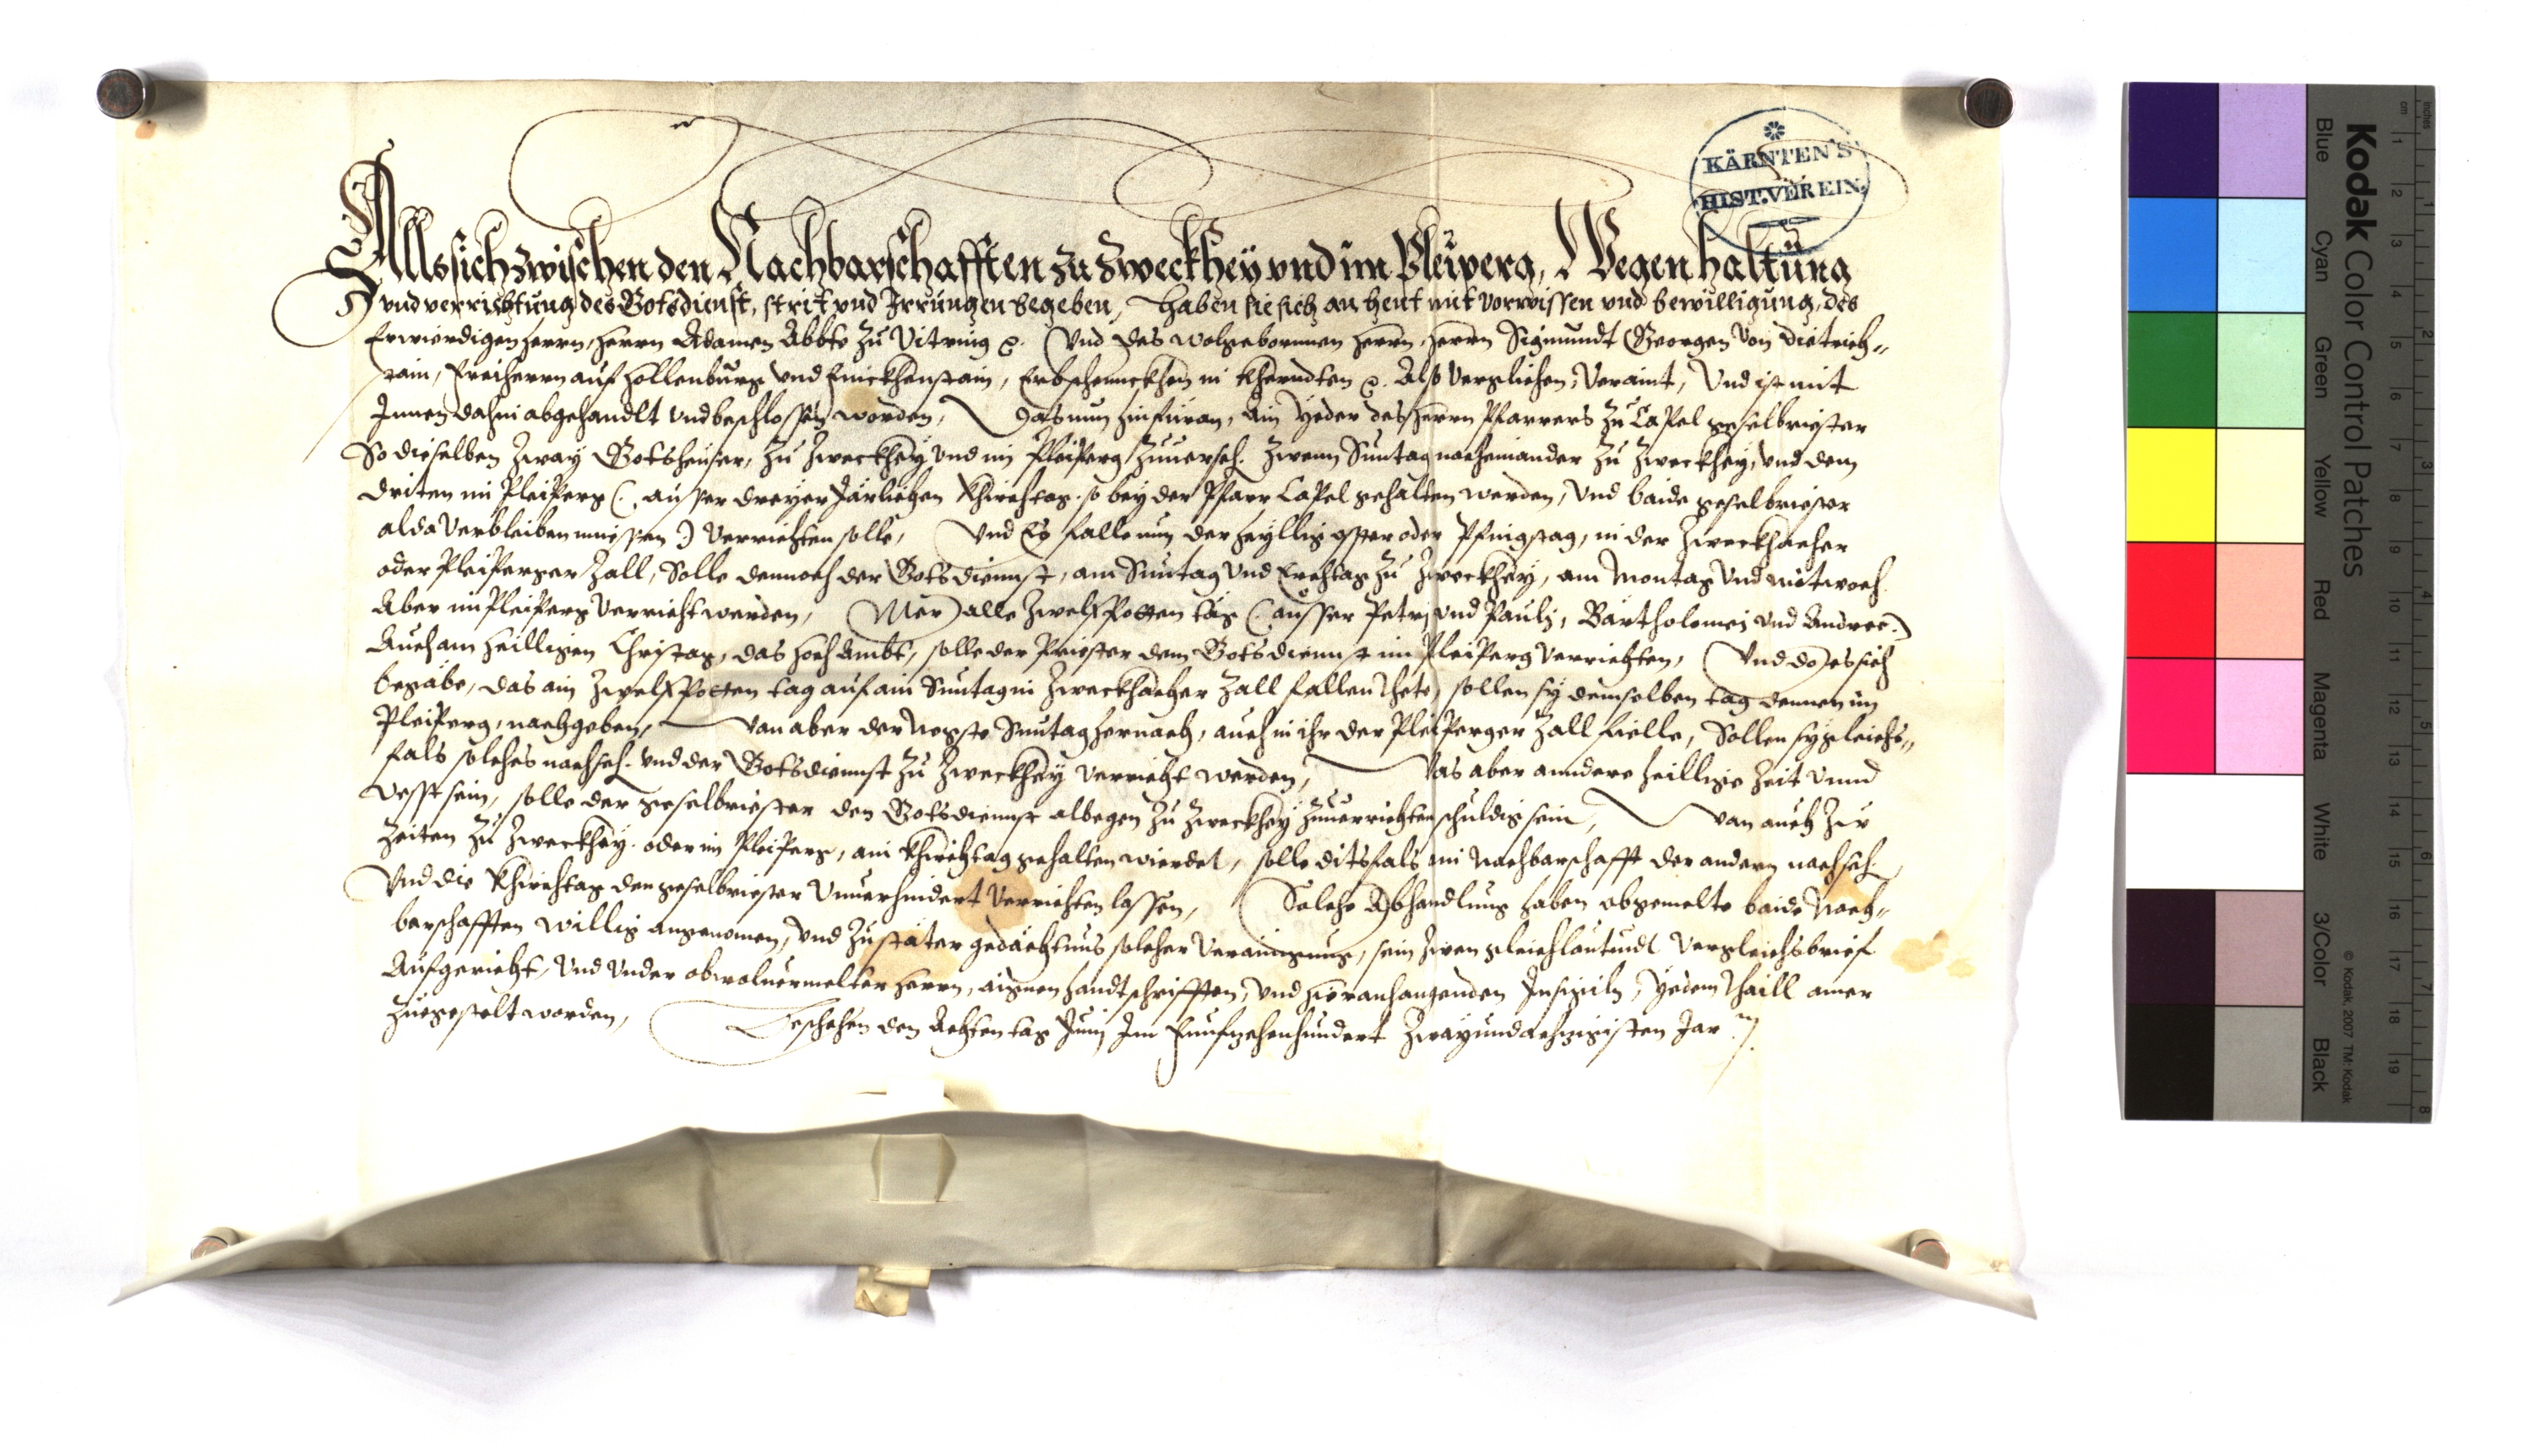 KÄRNTEN'S
HIST. VEREIN.
Allssich zwischen den Nachbarschafften zu Zweckhey vnd im Pleiperg, Wegen haltung
vnd verrichtung des Gotsdienst, strit vnd Irrungen begeben, haben sie sich an heut mit vorwissen vnd bewilligung, des
Erwierdigen herrn, herrn Adamen Abbte zu Vitring ꝛc. Vnd des wolgebornnen herrn, herrn Sigmundt Georgen von Dietrich„
stain, Freiherrn auf hollenburg vnd Finckhenstain, Erbschennckhen in Kharndten ꝛc. Also verglichen, veraint, Vnd ist mit
Innen dahin abgehandlt vnd beschlossen worden, Das nun hinfüran, Ain Yeder des herrn Pfarrers zu Capel gselbriester
So dieselben zway Gotsheuser, zu Zweckhey vnd im Pleiperg zuuersich. zwenn Suntag nacheinander zu Zweckhey, vnd den
driten im Pleiperg (: ausser dreyer Järlichen Khirchtag. so bey der Pfarr Capel gehalten werden, vnd baide gselbriester
alda verbleiben muessen :) verrichten solle, Vnd Es falle nun der heyllig oster oder Pfingstag, in der Zweckhacher
oder Pleiperger Zall, Solle dennoch der Gotsdiennst, am Suntag vnd Erchtag zu Zweckhey, am Montag vnd mitwoch
Aber im Pleiperg verricht werden, Mer alle Zwelfpotten täg (: ausser Petri vnd Pauli, Bartholomei vnd Andree :)
Auch am heilligen Christag, das hoch Ambt, solle der Priester den Gotsdiennst im Pleiperg verrichten, Vnd do es sich
begäbe, das ain Zwelfpotten tag auf ain Suntag in Zweckhacher Zall fallen thete, sollen sy denselben tag dennen im
Pleiperg, nachgeben, Wan aber der negste Suntag hernach, auch in ihr der Pleiperger Zall fielle, Sollen sy gleichs„
fals solches nachseh. vnd der Gotsdiennst zu Zweckhey verricht werden, Was aber anndere heillige Zeit vnnd
Vesst sein, solle der gselbriester den Gotsdiennst albegen zu Zweckhey zuuerrichten schuldig sein, Wan auch zur
Zeiten zu Zweckhey. oder im Pleiperg, ain Khirchtag gehalten wierdet, solle ditsfals ain Nachbarschafft der andern nachseh.
Vnd die Khirchtag den gselbriester vnuerhindert verrichten lassen, Solche Abhandlung haben obgemelte baide Nach„
barschafften willig angenomen, vnd zu stäter gedächtnus solcher verainigung, sein zwen gleichlautundt vergleichsbrief
Aufgericht, Vnd vnder obwoluermelter herrn, aignen handtschrifften, vnd hieranhangenden Insigiln, Yedem thaill ainer
zuegestelt worden, Geschehen den Achten tag Junij Im Funfzehenhundert Zwayundachzigisten Jar
Kodak Color Control Patches
Blue Cyan Green Yellow Red Magenta White 3/Color Black
© Kodak, 2007 TM: Kodak
inches 1 2 3 4 5 6 7 8
cm 1 2 3 4 5 6 7 8 9 10 11 12 13 14 15 16 17 18 19